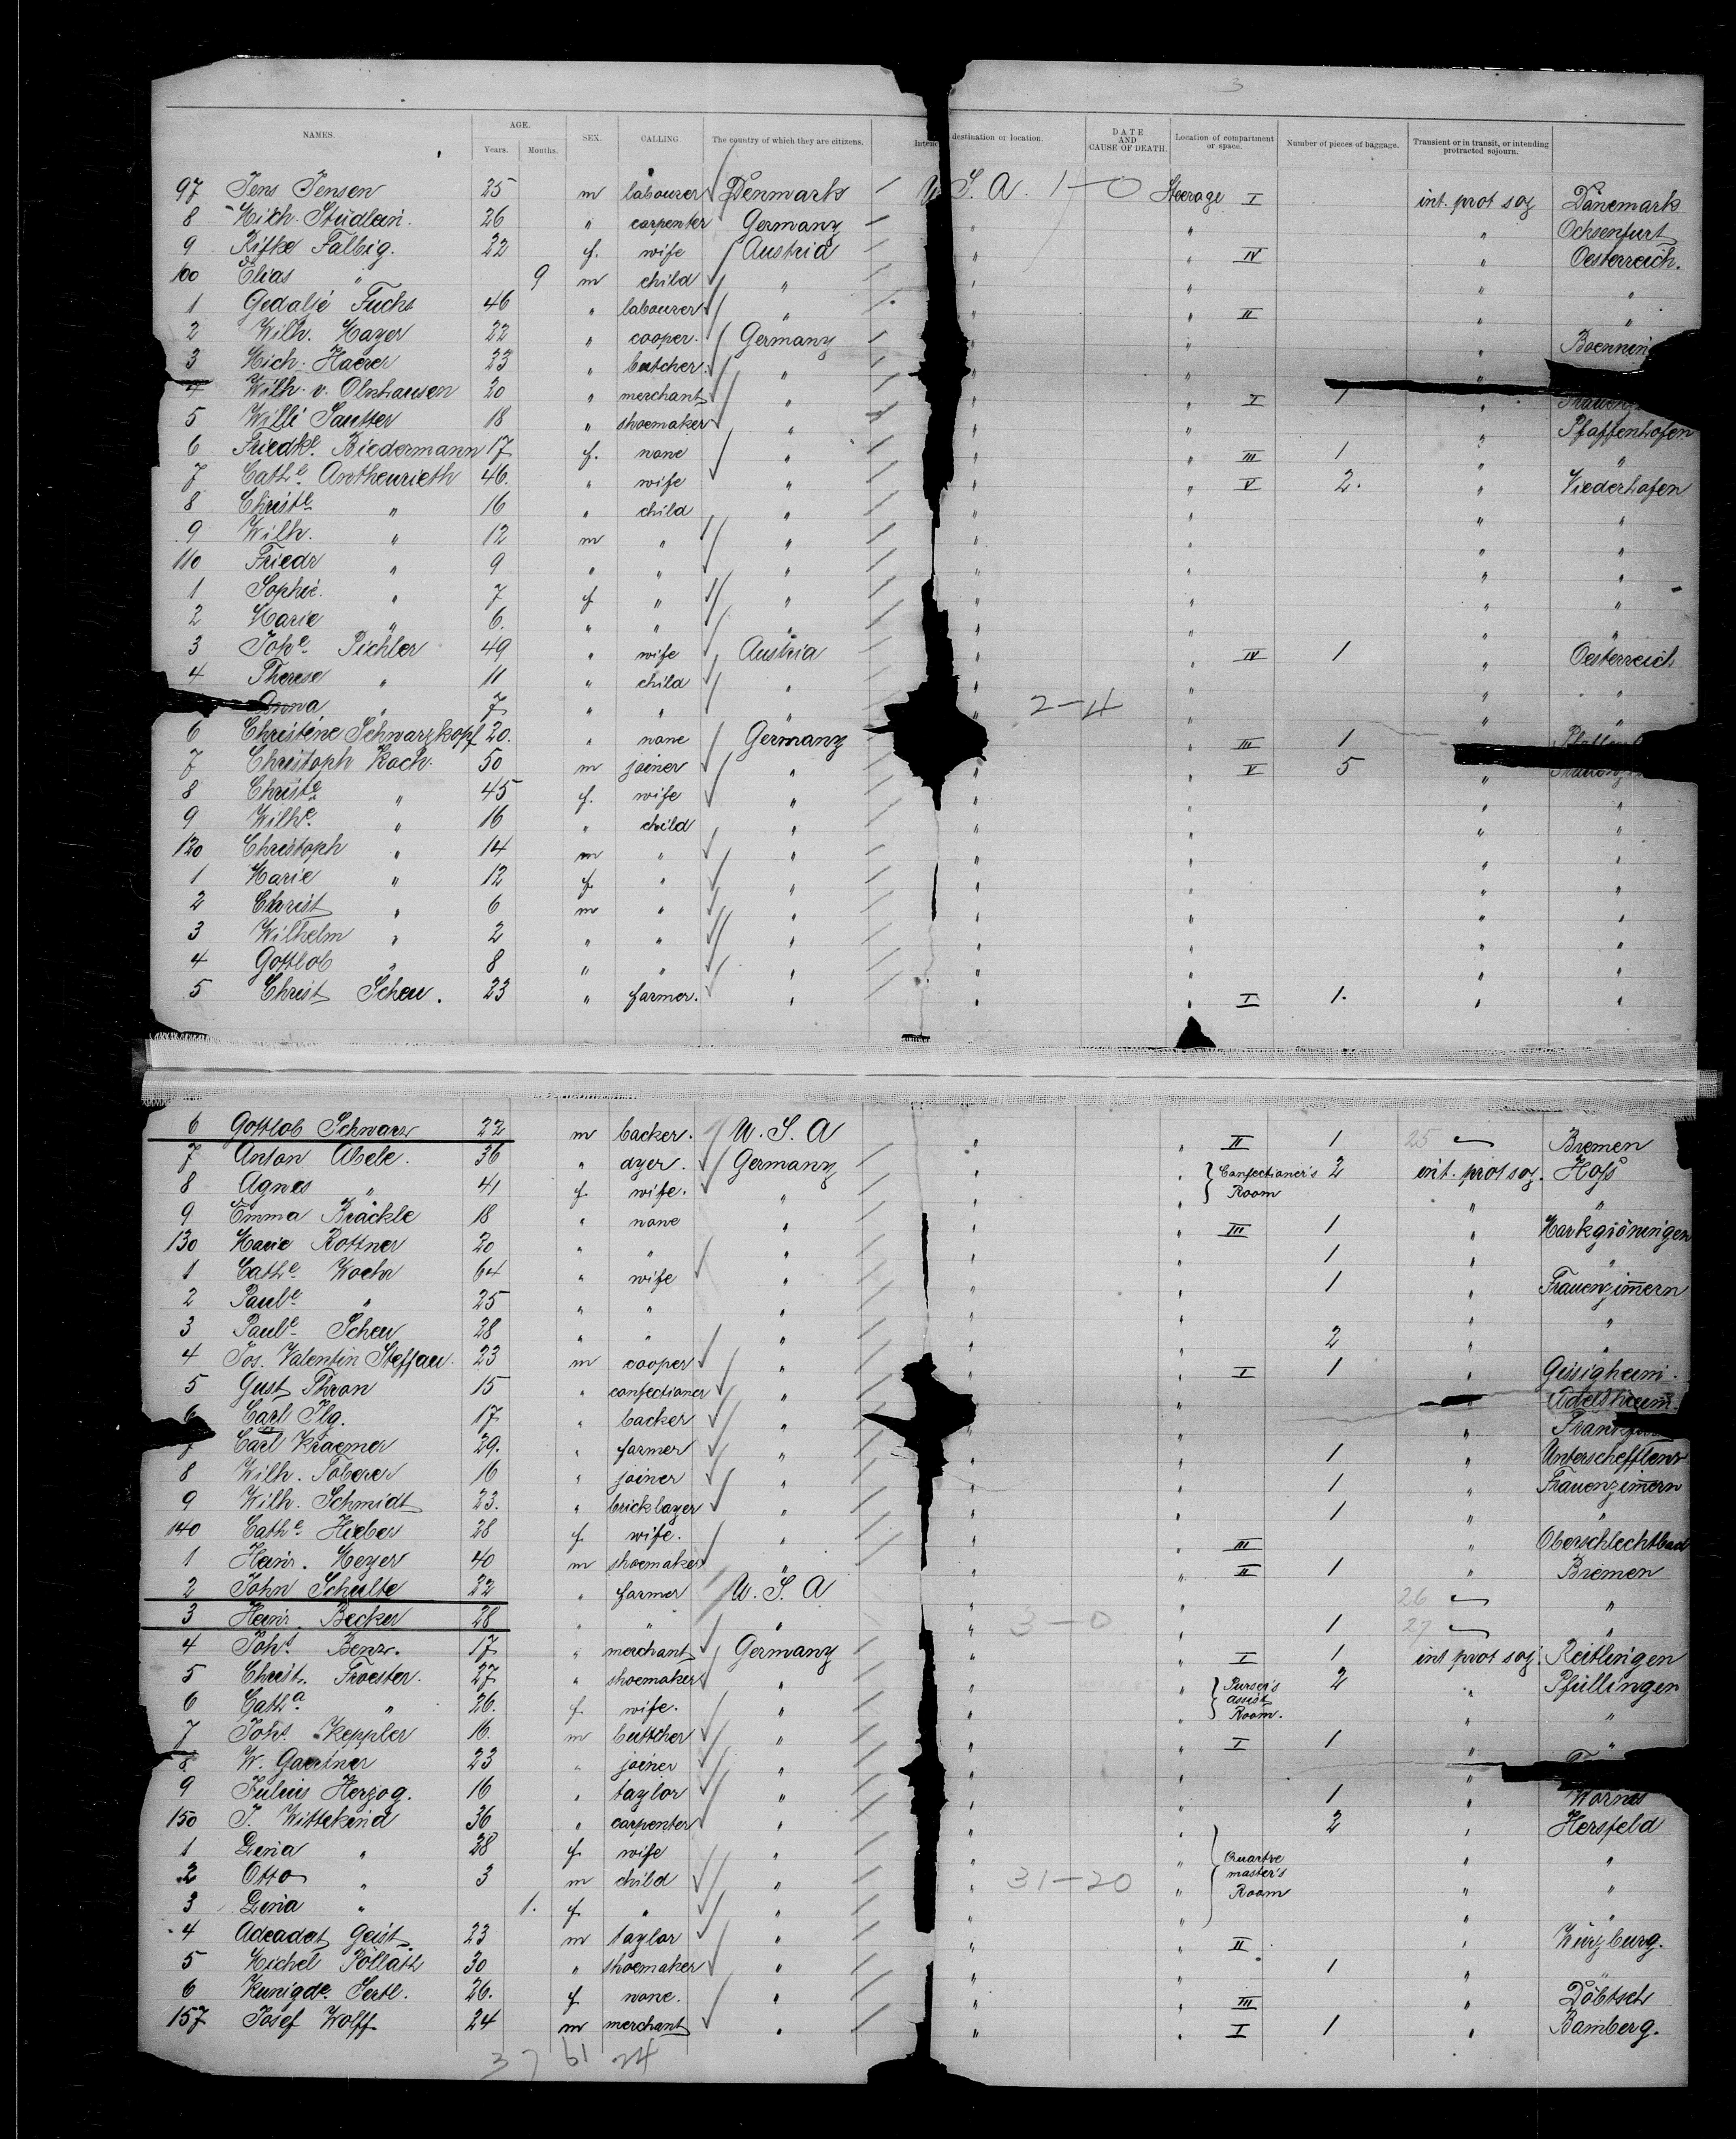 3
NAMES. AGE. Years. Months. SEX. CALLING. The country of which they are citizens. destination or location. DATE AND CAUSE OF DEATH. Location of compartment or space. Number of pieces of baggage. Transient or in transit, or intending protracted sojourn.
97 Jens Jensen 25 m labourer Denmark U. S. A. 1-0 Steerage I int. prot soj Dänemark
8 Mich. Studlein. 26 " carpenter Germany " " " Ochsenfurt
9 Rifke Falbig. 22 f. wife Austria " " IV " Oesterreich.
100 Elias " 9 m child " " " " "
1 Gedalje Fuchs 46 " labourer " " " II " "
2 Wilh. Mayer 22 " cooper. Germany " " "
3 Mich. Haerer 23 " butcher. " " "
4 Wilh. v. Olnhausen 20 " merchant " " I 1 "
5 Willi Sautter 18 " shoemaker " " " " Pfaffenhofen
6 Friedke. Biedermann 17 f. none " " " III 1 " "
7 Cathe. Anthenrieth 46. " wife " " " V 2. " Niederhofen
8 Christe " 16 " child " " " " "
9 Wilh. " 12 m " " " " " "
110 Friedr " 9 " " " " " " "
1 Sophie. " 7 f " " " " " "
2 Marie " 6. " " " " " " "
3 Johe Pichler 49 " wife Austria " " IV 1 " Oesterreich
4 Therese " 11 " child " " " " "
Anna " 7 " " " " 2-4 " "
6 Christine Schwarzkopf 20. " none Germany " III 1
7 Christoph Koch. 50 m joiner " " " V 5 "
8 Christe " 45 f. wife " " " " "
9 Wilhe. " 16 " child " " " " "
120 Christoph " 14 m " " " " " "
1 Marie " 12 f. " " " " " "
2 Christ " 6 m " " " " " "
3 Wilhelm " 2 " " " " " " "
4 Gottlob " 8 " " " " " " "
5 Christ Scheu. 23 " farmer. " " " I 1. " "
6 Gottlob Schwarz 22 m backer. U. S. A " " II 1 25 Bremen
7 Anton Abele. 36 " dyer. Germany " " Confectioner's Room 2 int. prot soj. Hofs
8 Agnes " 41 f. wife. " " " " "
9 Emma Bräckle 18 " none " " " III 1 " Markgröningen
130 Marie Rottner 20 " " " " " 1 " "
1 Cathe Woehr 64 " wife " " " 1 " Frauenzimmern
2 Paule " 25 " " " " " " "
3 Paule Scheu 28 " " " " " 2 " "
4 Jos. Valentin Steffan. 23 m cooper " " " I 1 " Gissigheim.
5 Gust Thron 15 " confectioner " " " Adelsheim.
6 Carl Ilg. 17 " backer " " " "
7 Carl Kraemer 29. " farmer " " " 1 " Unterschefflenz
8 Wilh. Toberer 16 " joiner " " " 1 " Frauenzimmern
9 Wilh. Schmidt 23. " bricklayer " " " 1 " "
140 Cathe Hieber 28 f. wife. " " " III " Oberschlechtbad
1 Heinr. Meyer 40 m shoemaker " " " II 1 " Bremen
2 John Schulte 22 " farmer U. S. A " " 26 "
3 Heinr. Becker 28 " " " " 3-0 " 1 27 "
4 Joht Benz. 17 " merchant Germany " " I 1 int prot soj. Reitlingen
5 Christ. Froester. 27 " shoemaker " " " Purser's assist Room. 2 " Pfullingen
6 Catha " 26. f. wife. " " " " "
7 Joht Keppler 16. m buttcher " " " I 1 " "
8 W. Gaertner 23 " joiner " " " "
9 Julius Herzog. 16 " taylor " " " 1 " Worms
150 J. Wittekind 36 " carpenter " " " 2 " Hersfeld
1 Lena " 28 f. wife " " " Quartre master's Room " "
2 Otto " 3 m child " " 31-20 " " "
3 Lena " 1. f. " " " " " "
4 Adeadat Geist 23 m taylor " " " II " Würzburg.
5 Michel Pöllath 30 " shoemaker " " " 1 " "
6 Kunigde. Sertl. 26. f. none. " " " III " Döbtsch
157 Josef Wolff 24 m merchant " " " I 1 " Bamberg.
37 61 24